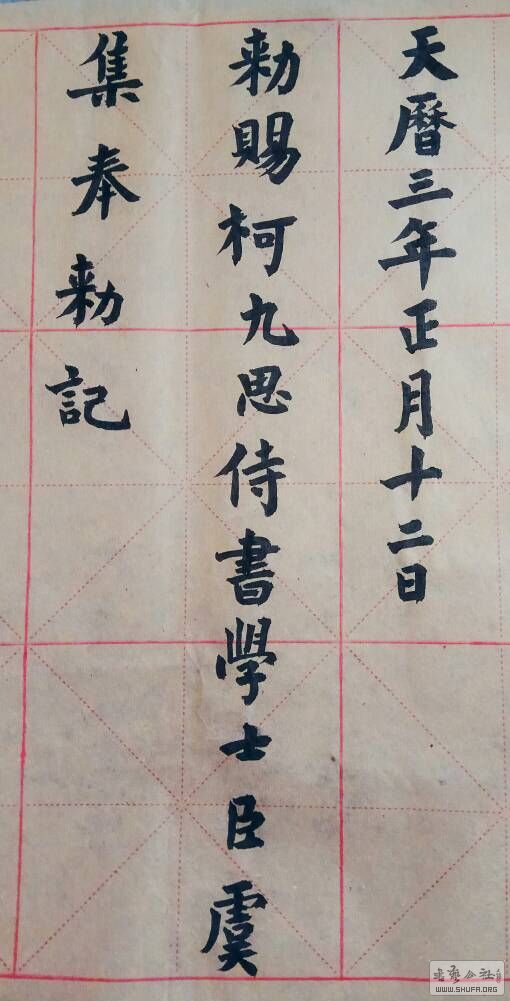 天曆三年正月十二日
勑賜柯九思侍書學士臣虞
集奉勑記
WWW.SHUFA.ORG